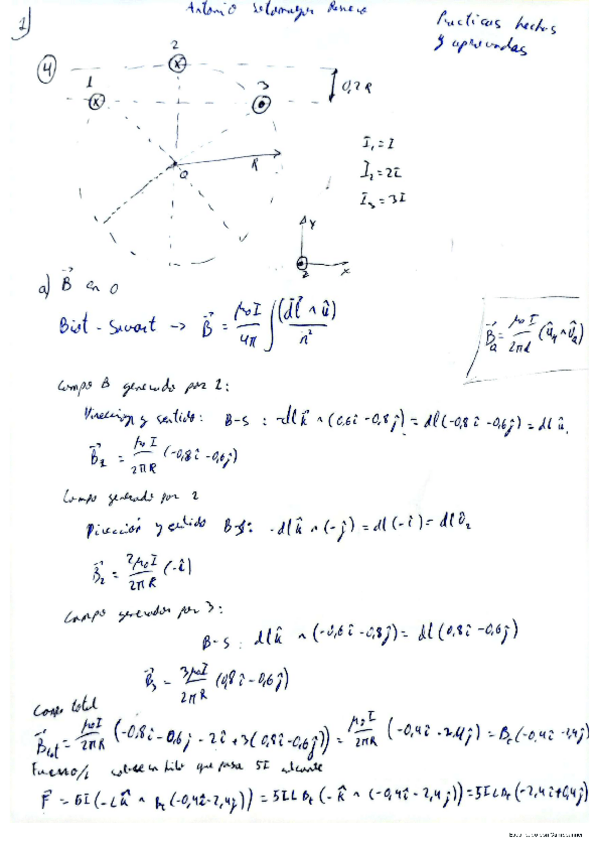 1)
Antonio
Practicas hechas
y aprovadas
4
2
1
3
0,2 R
R
O
I₁ = I
I₂ = 2I
I₃ = 3I
y
z
x
a) B⃗ en O
Biot - Savart → B⃗ = μ₀I/4π ∫ (dl⃗ ∧ û)/r²
B⃗a = μ₀ I/2πd (û ∧ û)
Campo B generado por 1:
Direccion y sentido: B-S : -dl k̂ ∧ (0,6î -0,8ĵ) = dl(-0,8î -0,6ĵ) = dl û.
B⃗₁ = μ₀I/2πR (-0,8î -0,6ĵ)
Campo generado por 2
Dirección y sentido B-S: -dl k̂ ∧ (-ĵ) = dl(-î) = dl û₂
B⃗₂ = 2μ₀I/2πR (-î)
Campo generados por 3:
B-S : dl k̂ ∧ (-0,6î -0,8ĵ) = dl (0,8î -0,6ĵ)
B⃗₃ = 3μ₀I/2πR (0,8î -0,6ĵ)
Campo total
B⃗tot = μ₀I/2πR (-0,8î -0,6ĵ -2î +3(0,8î -0,6ĵ)) = μ₀I/2πR (-0,4î -2,4ĵ) = (-0,4î -2,4ĵ)
Fuerza/L sobre un hilo que pasa 5I
F⃗ = 5I(-L k̂ ∧ (-0,4î -2,4ĵ)) = 5IL (-k̂ ∧ (-0,4î -2,4ĵ)) = 5IL (-2,4î +0,4ĵ)